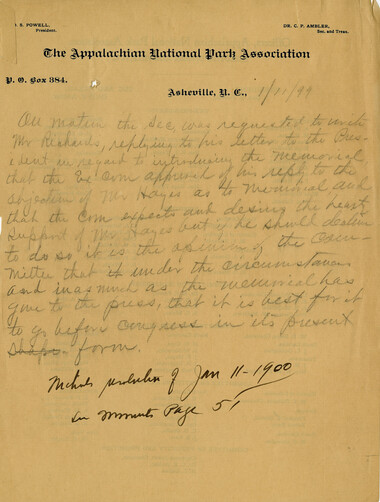 S. POWELL,
President.
DR. C. P. AMBLER,
Sec. and Treas.
The Appalachian National Park Association
P. O. Box 384.
Asheville, N. C., 1/11/99
On motion the Sec. was requested to write
Mr Richards, replying to his letter to the Pres-
ident in regard to introducing the Memorial,
that the Ex Com approved of his reply to the
of Mr Hayes as to Memorial and
that the Com expects and desires the hearty
support of Mr Hayes but if he should decline
to do so it is the opinion of the Com-
mittee that it under the circumstances
and inasmuch as the memorial has
gone to the press, that it is best for it
to go before Congress in its present
shape form.
of Jan 11-1900
See Minutes Page 51